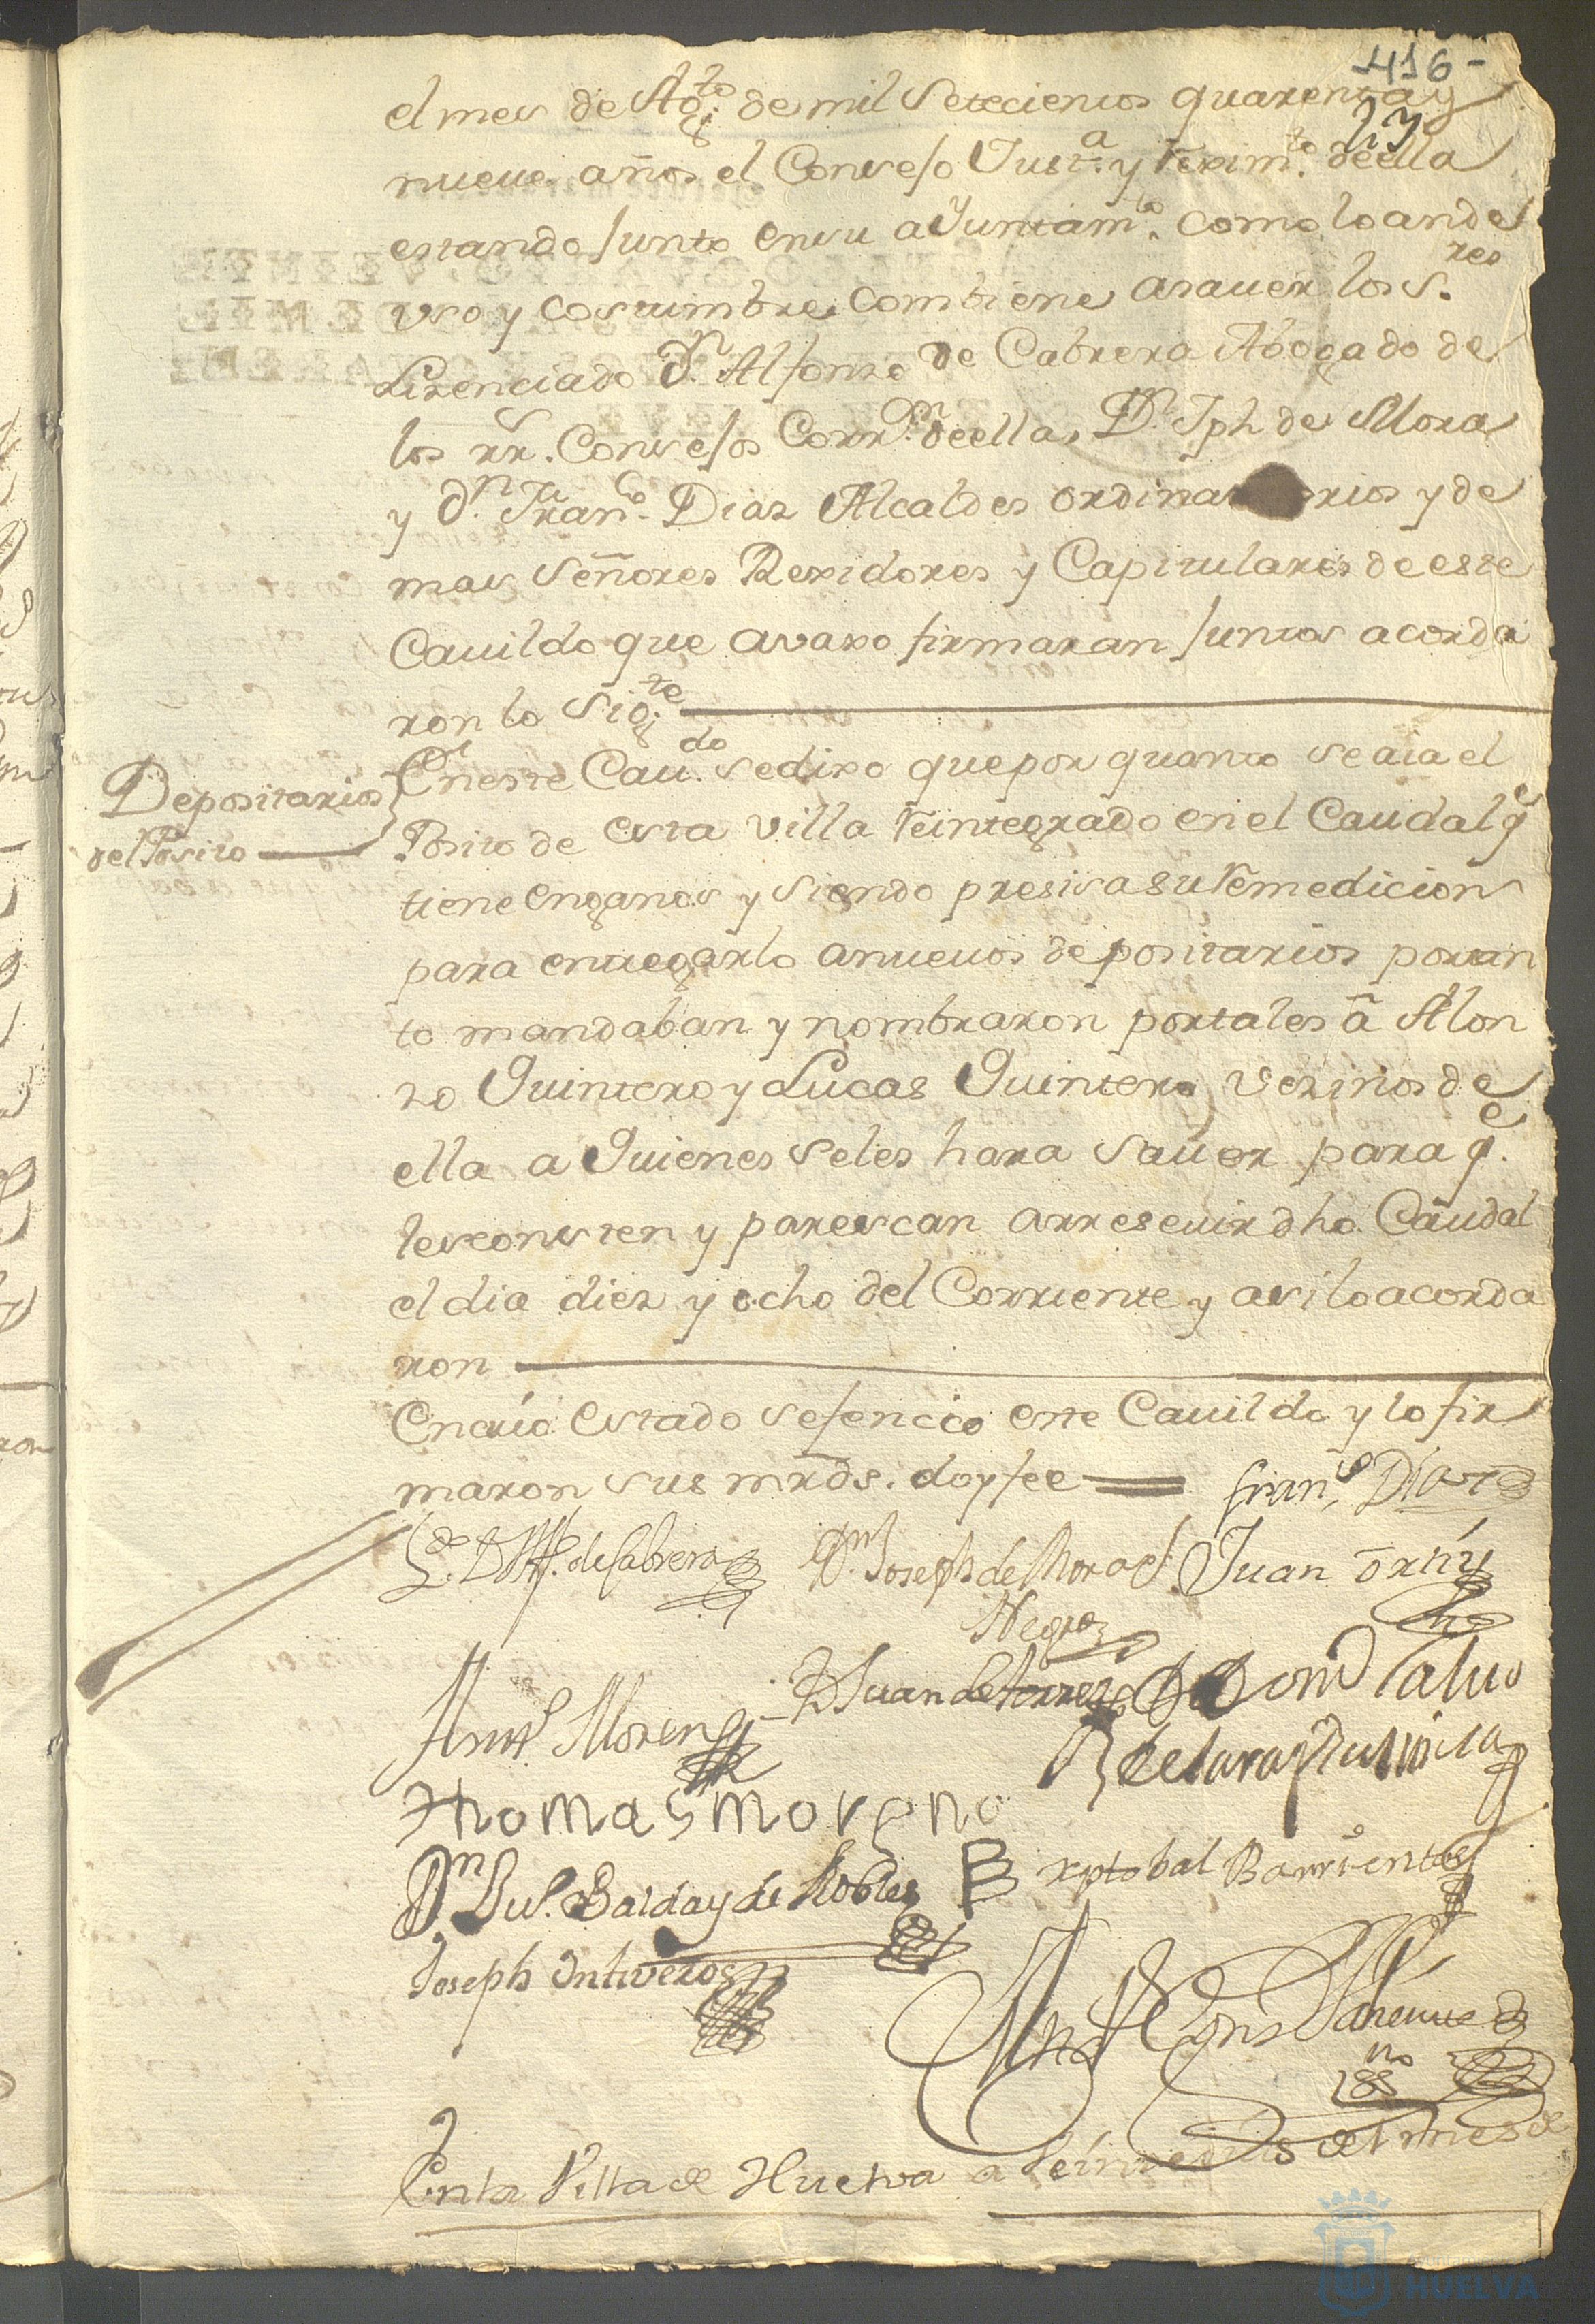 416-
27
el mes de Ag.to de mil Setecientos quarenta y
nueve años el Consejo Just.a y reximt.o de ella
estando junto en su aYuntam.to como lo an de
uso y costumbre combiene asauer los S.res
Lizenciado D.n Alfonso de Cabrera Abogado de
los rr.s Consejos Corr.or de ella, D.n Jph de Mora
y D.n Fran.co Diaz Alcaldes ordinarios y de
mas Señores Rexidores y Capitulares de este
Cauildo que avaxo firmaran juntos acorda
ron lo Sig.te
Depositarios
del Posito
En este Cau.do se dixo que por quanto se aia el
Posito de esta villa reintegrado en el Caudal q.e
tiene en ganos y siendo presisa su remedicion
para entregarlo a nueuos depositarios portan
to mandaban y nombraron por tales a Alon
zo Quintero y Lucas Quintero vezinos de
ella a Quienes se les hara sauer para q.e
les consten y parescan a rreseuir dho Caudal
el dia diez y ocho del Corriente y asi lo acorda
ron
En cuio estado se fencio este Cauildo y lo fir
maron sus mrds. doy fee
Fran.co Diaz
L.do D. Alf. de Cabrera
D.n Joseph de Mora
Negro
Juan Ortiz
Ant.o Moreno
D Juan de torres
Dom Calvo
Thomas Moreno
de Lara
D.n Balda y de Robles
xptobal Barrientos
Joseph Ontiveros
ss.no
En la Villa de Huelva a del mes de
HUELVA